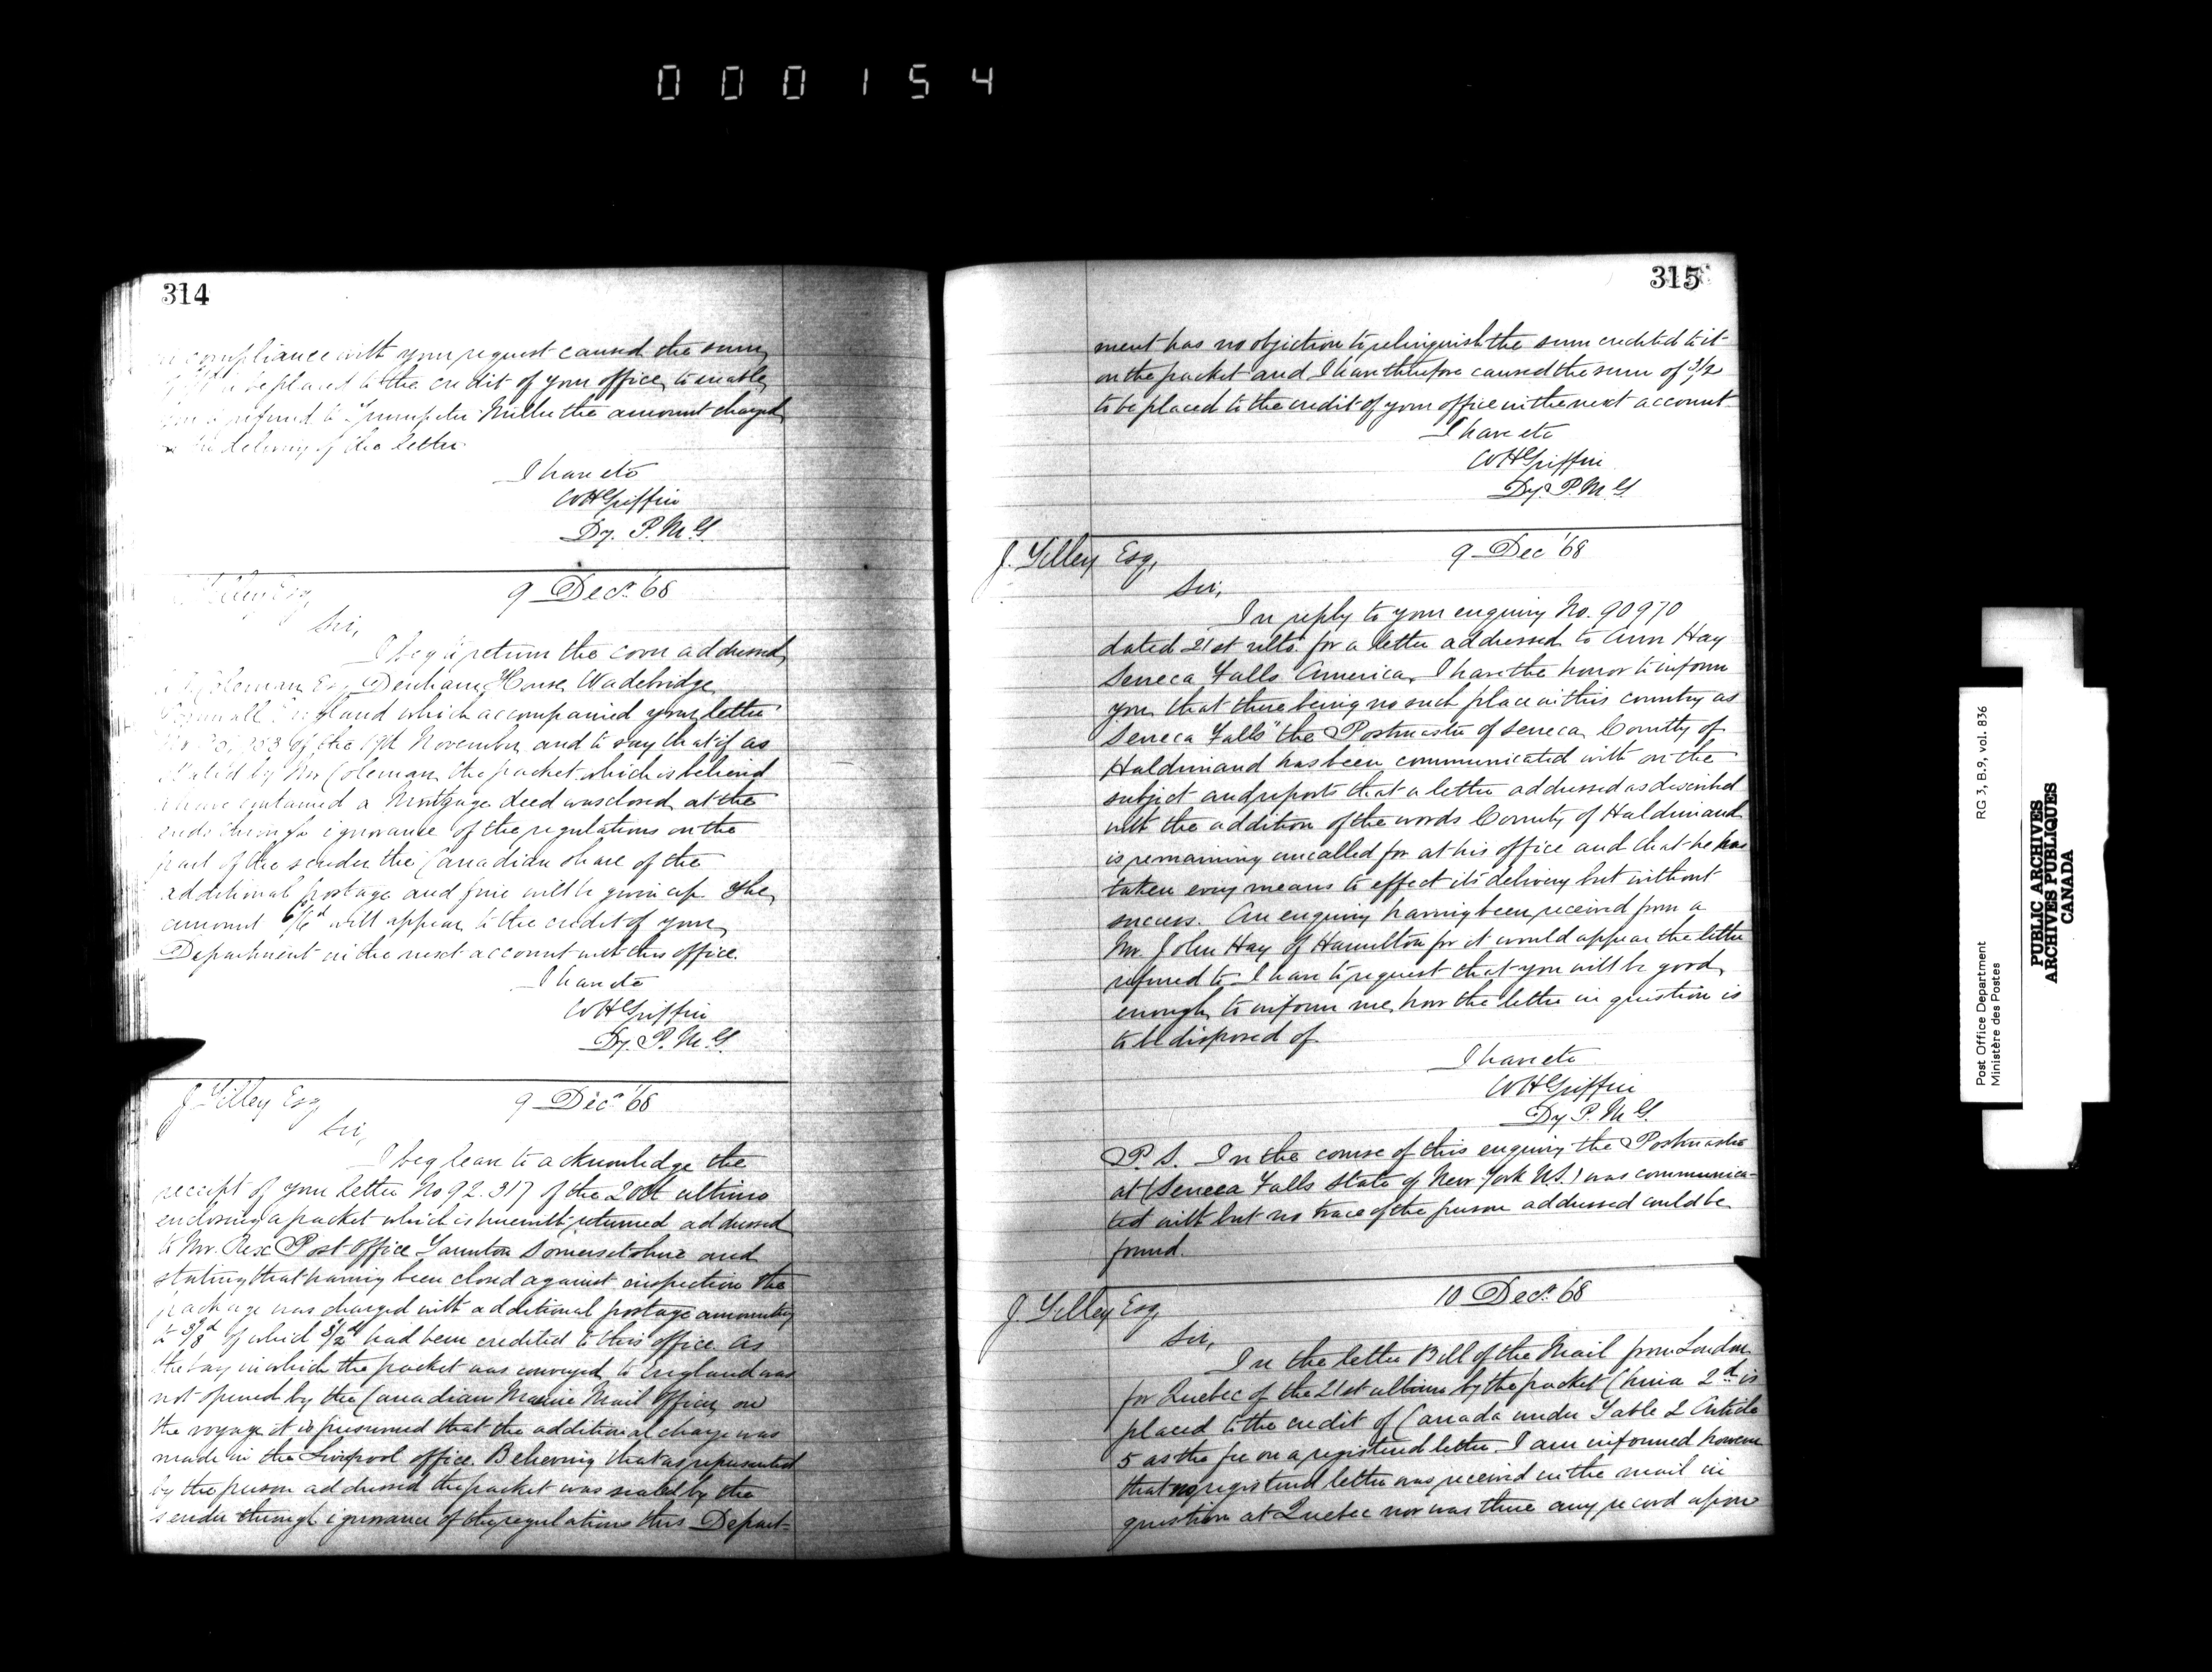 000154
314
compliance with your request caused the sum
be placed to the credit of your office to enable
refund to Trumpeter Miller the amount charged
the delivery of the letter
I have etc
WHGriffin
Dy. P.M.G.
Tilley Esq,
9 Decr. '68
Sir,
I beg to return the cover addressed
Coleman Esq Denham House Wadebridge
Cornwall England which accompanied your letter
of the 19th November and to say that if as
stated by Mr Coleman the packet which is believed
to have contained a Mortgage deed was closed at the
ends through ignorance of the regulations on the
part of the sender the Canadian share of the
additional postage and fine will be given up. The
amount 6/6d will appear to the credit of your
Department in the next account with this office.
I have etc
WHGriffin
Dy. P.M.G.
J Tilley Esq
9 Decr '68
Sir,
I beg leave to acknowledge the
receipt of your letter No 92.317 of the 20th ultimo
enclosing a packet which is herewith returned addressed
to Mr. Rex Post Office Taunton Somersetshire and
stating that having been closed against inspection the
package was charged with additional postage amounting
to 3/8d of which 3/2d had been credited to this office. As
the bag in which the packet was conveyed to England was
not opened by the Canadian Marine Mail Officer on
the voyage it is presumed that the additional charge was
made in the Liverpool office. Believing that as represented
by the person addressed the packet was sealed by the
sender through ignorance of the regulations this Depart-
315
ment has no objection to relinquish the sum credited to it
on the packet and I have therefore caused the sum of 3/2
to be placed to the credit of your office in the next account.
I have etc
WHGriffin
Dy. P.M.G
J. Tilley Esq,
9 Dec '68
Sir,
In reply to your enquiry No. 90970
dated 21st ulto. for a letter addressed to Ann Hay
Seneca Falls America, I have the honor to inform
you that there being no such place in this country as
"Seneca Falls" the Postmaster of Seneca County of
Haldimand has been communicated with on the
subject and reports that a letter addressed as described
with the addition of the words County of Haldimand
is remaining uncalled for at his office and that he has
taken every means to effect its delivery but without
success. An enquiry having been received from a
Mr. John Hay of Hamilton for it would appear the letter
referred to I have to request that you will be good
enough to inform me how the letter in question is
to be disposed of
I have etc
WHGriffin
Dy P.M.G.
P.S. In the course of this enquiry the Postmaster
at (Seneca Falls State of New York U.S.) was communica-
ted with but no trace of the person addressed could be
found.
10 Decr. 68
J Tilley Esq,
Sir,
In the letter Bill of the Mail from London
for Quebec of the 21st ultimo by the packet China 2d is
placed to the credit of Canada under Table 2 Article
5 as the fee on a registered letter. I am informed however
that no registered letter was received in the mail in
question at Quebec nor was there any record upon
RG 3, B.9, vol. 836
Post Office Department
Ministère des Postes
PUBLIC ARCHIVES
ARCHIVES PUBLIQUES
CANADA